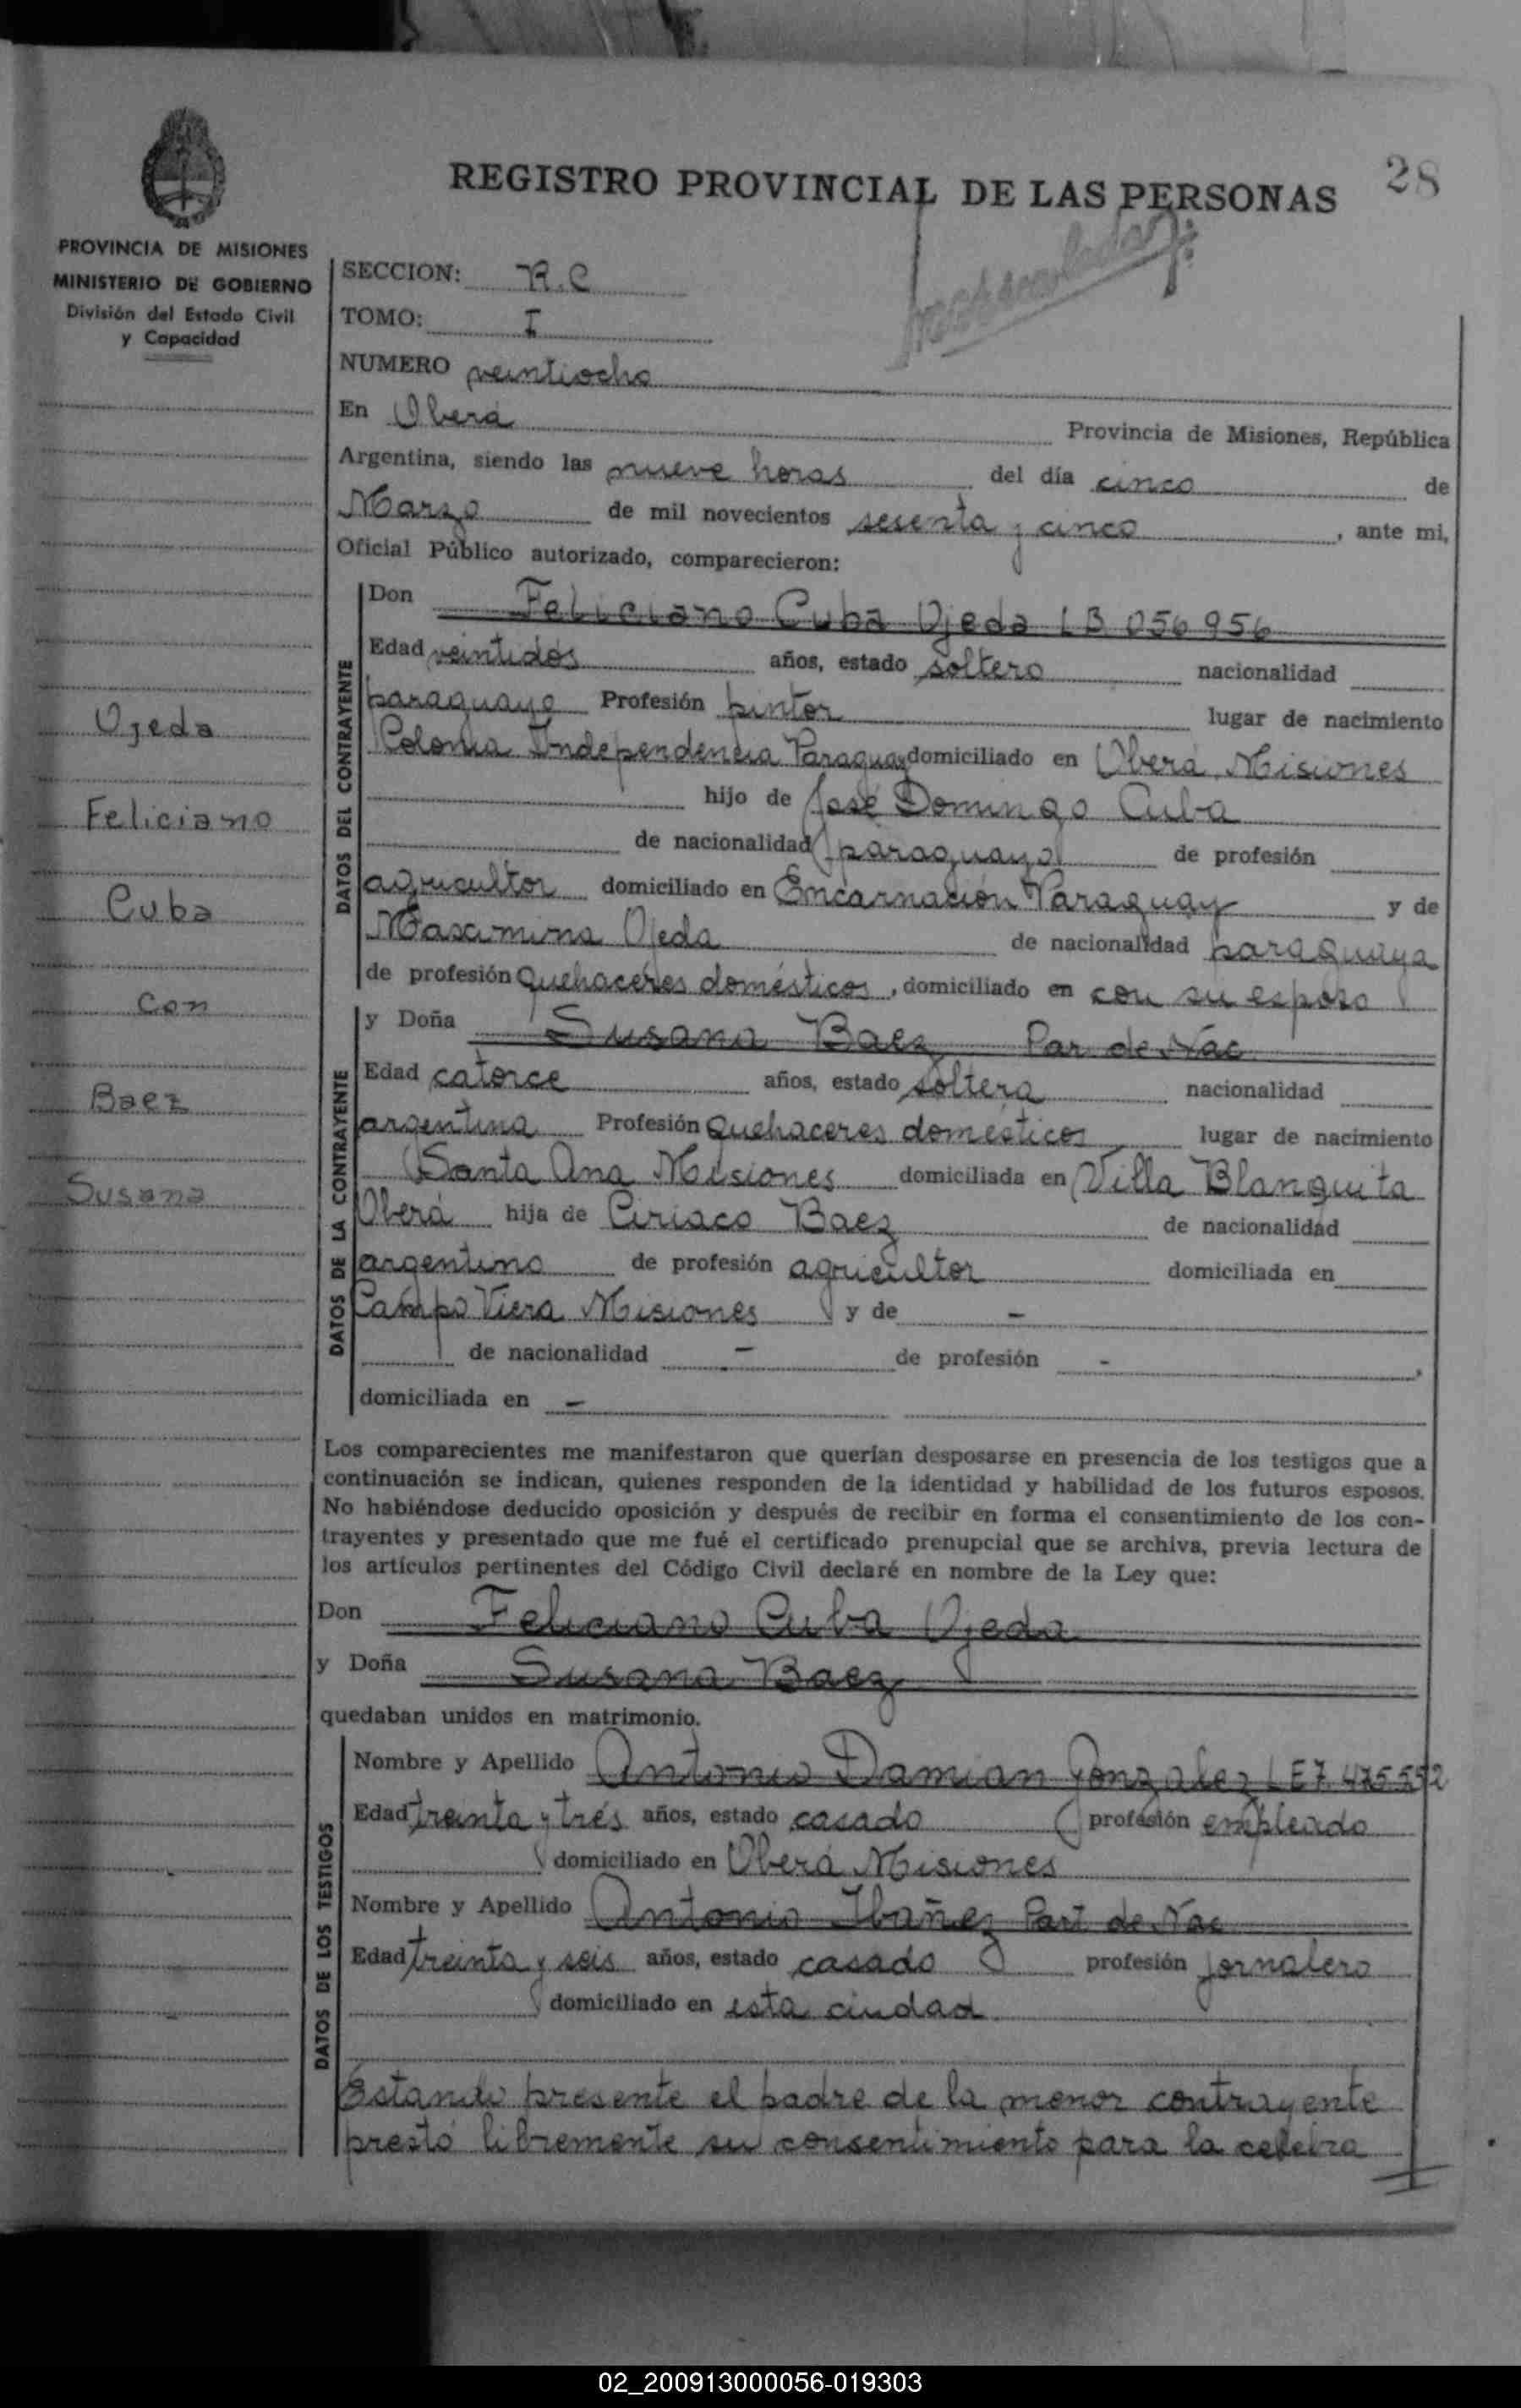 28
REGISTRO PROVINCIAL DE LAS PERSONAS
PROVINCIA DE MISIONES
MINISTERIO DE GOBIERNO
División del Estado Civil
y Capacidad
SECCION: R.C
TOMO: I
NUMERO veintiocho
En Oberá Provincia de Misiones, República
Argentina, siendo las nueve horas del día cinco de
Marzo de mil novecientos sesenta y cinco, ante mi,
Oficial Público autorizado, comparecieron:
DATOS DEL CONTRAYENTE
Don Feliciano Cuba Ojeda LB 056956
Edad veintidós años, estado soltero nacionalidad
paraguayo Profesión pintor lugar de nacimiento
Colonia Independencia Paraguay domiciliado en Oberá, Misiones
hijo de José Domingo Cuba
de nacionalidad paraguayo de profesión
agricultor domiciliado en Encarnación Paraguay y de
Maximina Ojeda de nacionalidad paraguaya
de profesión Quehaceres domésticos, domiciliado en con su esposo
DATOS DE LA CONTRAYENTE
y Doña Susana Baez Par de Nac
Edad catorce años, estado soltera nacionalidad
argentina Profesión Quehaceres domésticos lugar de nacimiento
Santa Ana Misiones domiciliada en Villa Blanquita
Oberá hija de Ciriaco Baez de nacionalidad
argentino de profesión agricultor domiciliada en
Campo Viera Misiones y de -
de nacionalidad - de profesión -,
domiciliada en -
Ojeda
Feliciano
Cuba
con
Baez
Susana
Los comparecientes me manifestaron que querían desposarse en presencia de los testigos que a
continuación se indican, quienes responden de la identidad y habilidad de los futuros esposos.
No habiéndose deducido oposición y después de recibir en forma el consentimiento de los con-
trayentes y presentado que me fué el certificado prenupcial que se archiva, previa lectura de
los artículos pertinentes del Código Civil declaré en nombre de la Ley que:
Don Feliciano Cuba Ojeda
y Doña Susana Baez
quedaban unidos en matrimonio.
DATOS DE LOS TESTIGOS
Nombre y Apellido Antonio Damian Gonzalez LE7 475552
Edad treinta y trés años, estado casado profesión empleado
domiciliado en Oberá Misiones
Nombre y Apellido Antonio Ibañez Part de Nac
Edad treinta y seis años, estado casado profesión jornalero
domiciliado en esta ciudad
Estando presente el padre de la menor contrayente
prestó libremente su consentimiento para la celebra
02_200913000056-019303